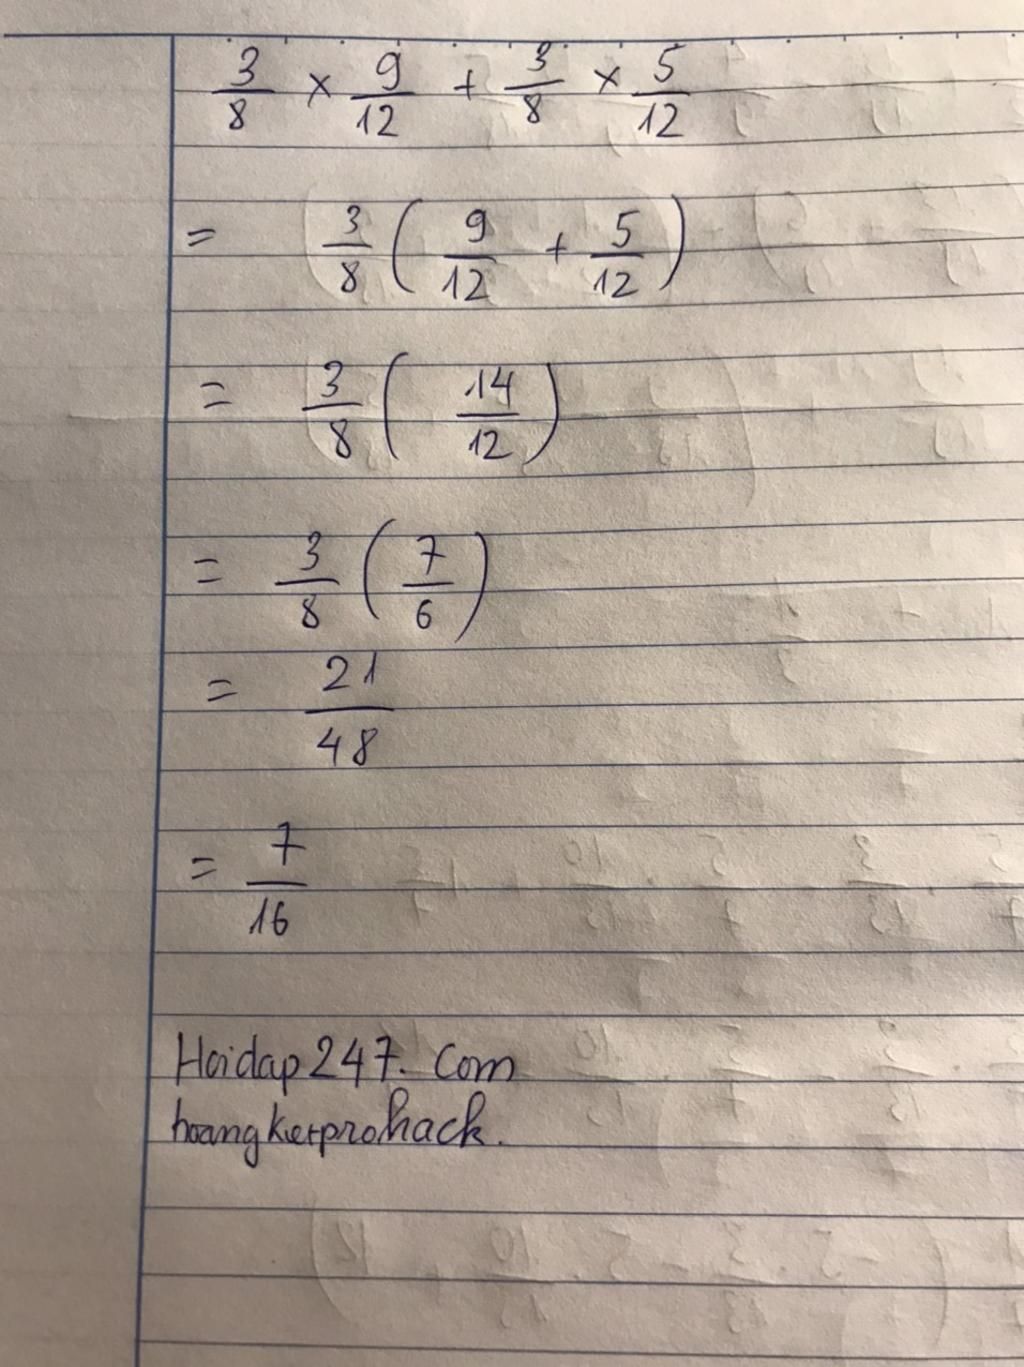 3/8 × 9/12 + 3/8 × 5/12
= 3/8 ( 9/12 + 5/12 )
= 3/8 ( 14/12 )
= 3/8 ( 7/6 )
= 21/48
= 7/16
Hoidap247.Com
hoangkerprohack.